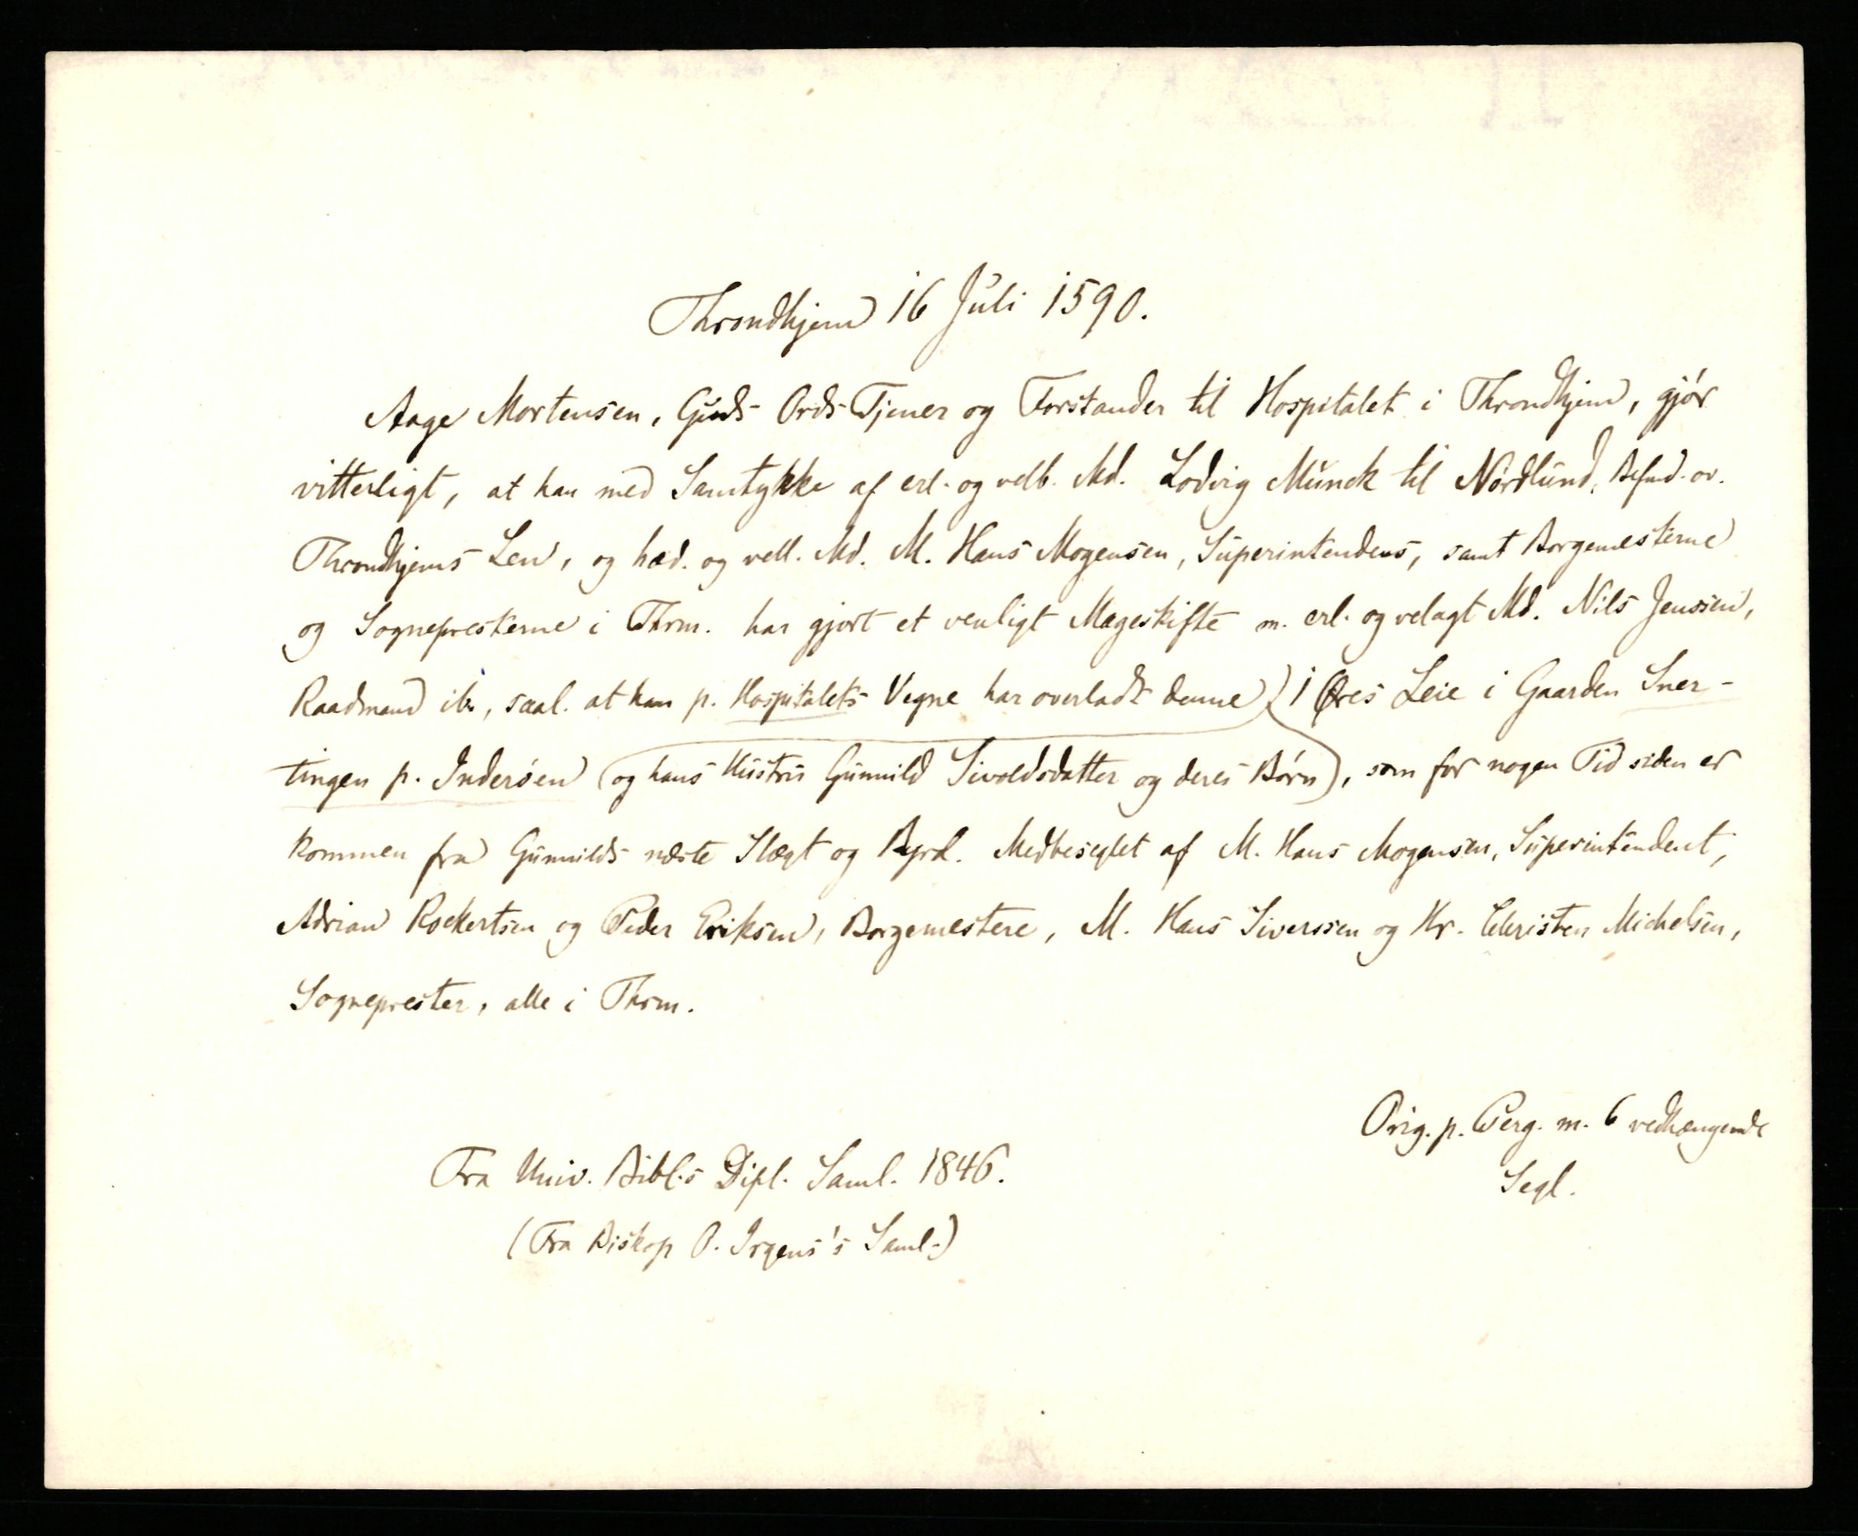 Throndhjem 16 Juli 1590.
Aage Mortensen, Guds Ords Tjener og Forstander til Hospitalet i Throndhjem, gjør
vitterligt, at han med Samtykke af erl. og velb. Md. Lodvig Munck til Nørlund, Befnd. ov.
Throndhjems Len, og hæd. og vell. Md. M. Hans Mogensen, Superintendens, samt Borgemesterne
og Sogneprestene i Thrm. har gjort et venligt Mageskifte m. erl. og velagt Md. Nils Jenssen,
Raadmand ib., saal. at han p. Hospitalets Vegne har overladt denne 1 Øres Leie i Gaarden Sner-
tingen p. Inderøen (og hans Hustru Gunnild Sivoldsdatter og deres Børn), som for nogen Tid siden er
kommen fra Gunnilds næste Slægt og Byrd. Medbeseglet af M. Hans Mogensen, Superintendent,
Adrian Rockertsen og Peder Eriksen, Borgemestere, M. Hans Siverssen og Hr. Christen Michelsen,
Sogneprester, alle i Thrm.
Orig. p. Perg. m. 6 vedhængende
Segl.
Fra Univ. Bibl.s Dipl. Saml. 1846.
(Fra Biskop O. Irgens's Saml.)